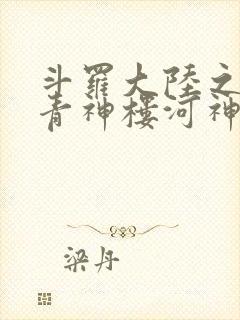 斗羅大陸之
青神樓河神
梁丹